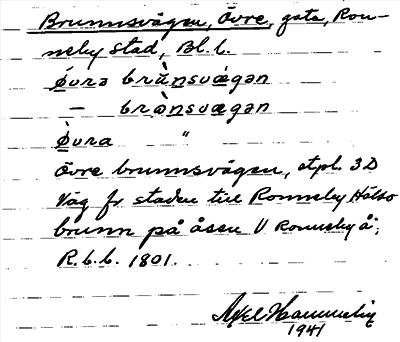 Brunnsvägen, Övre, gata, Ron-
neby stad, Bl. l.
ø̀vrə brɯ̀nsvægən
— brɵ̀nsvægən
ø̀vra "
övre brunnsvägen, stpl. 3D
Väg fr staden till Ronneby Hälso
brunn på åsen V Ronneby å;
R.b.b. 1801.
Axel Hammarlin
1941